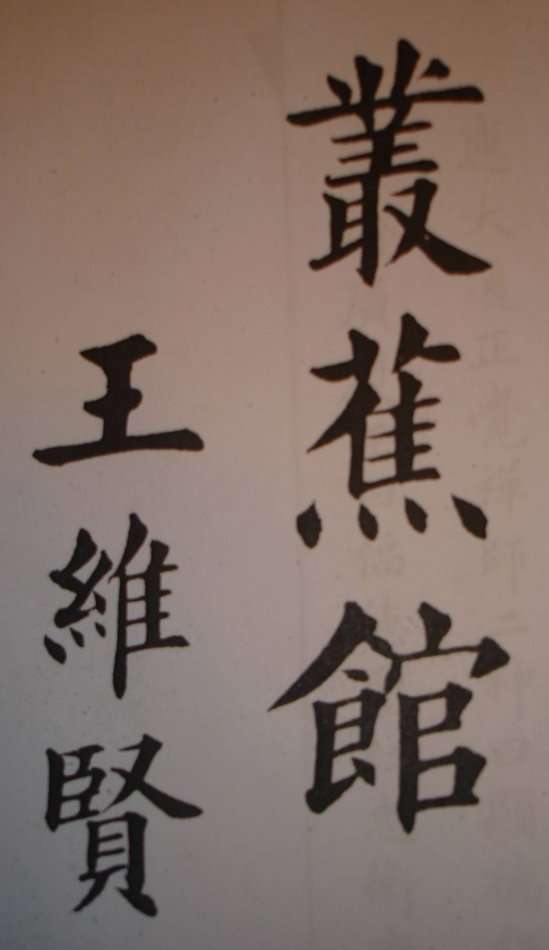 叢蕉館
王維賢